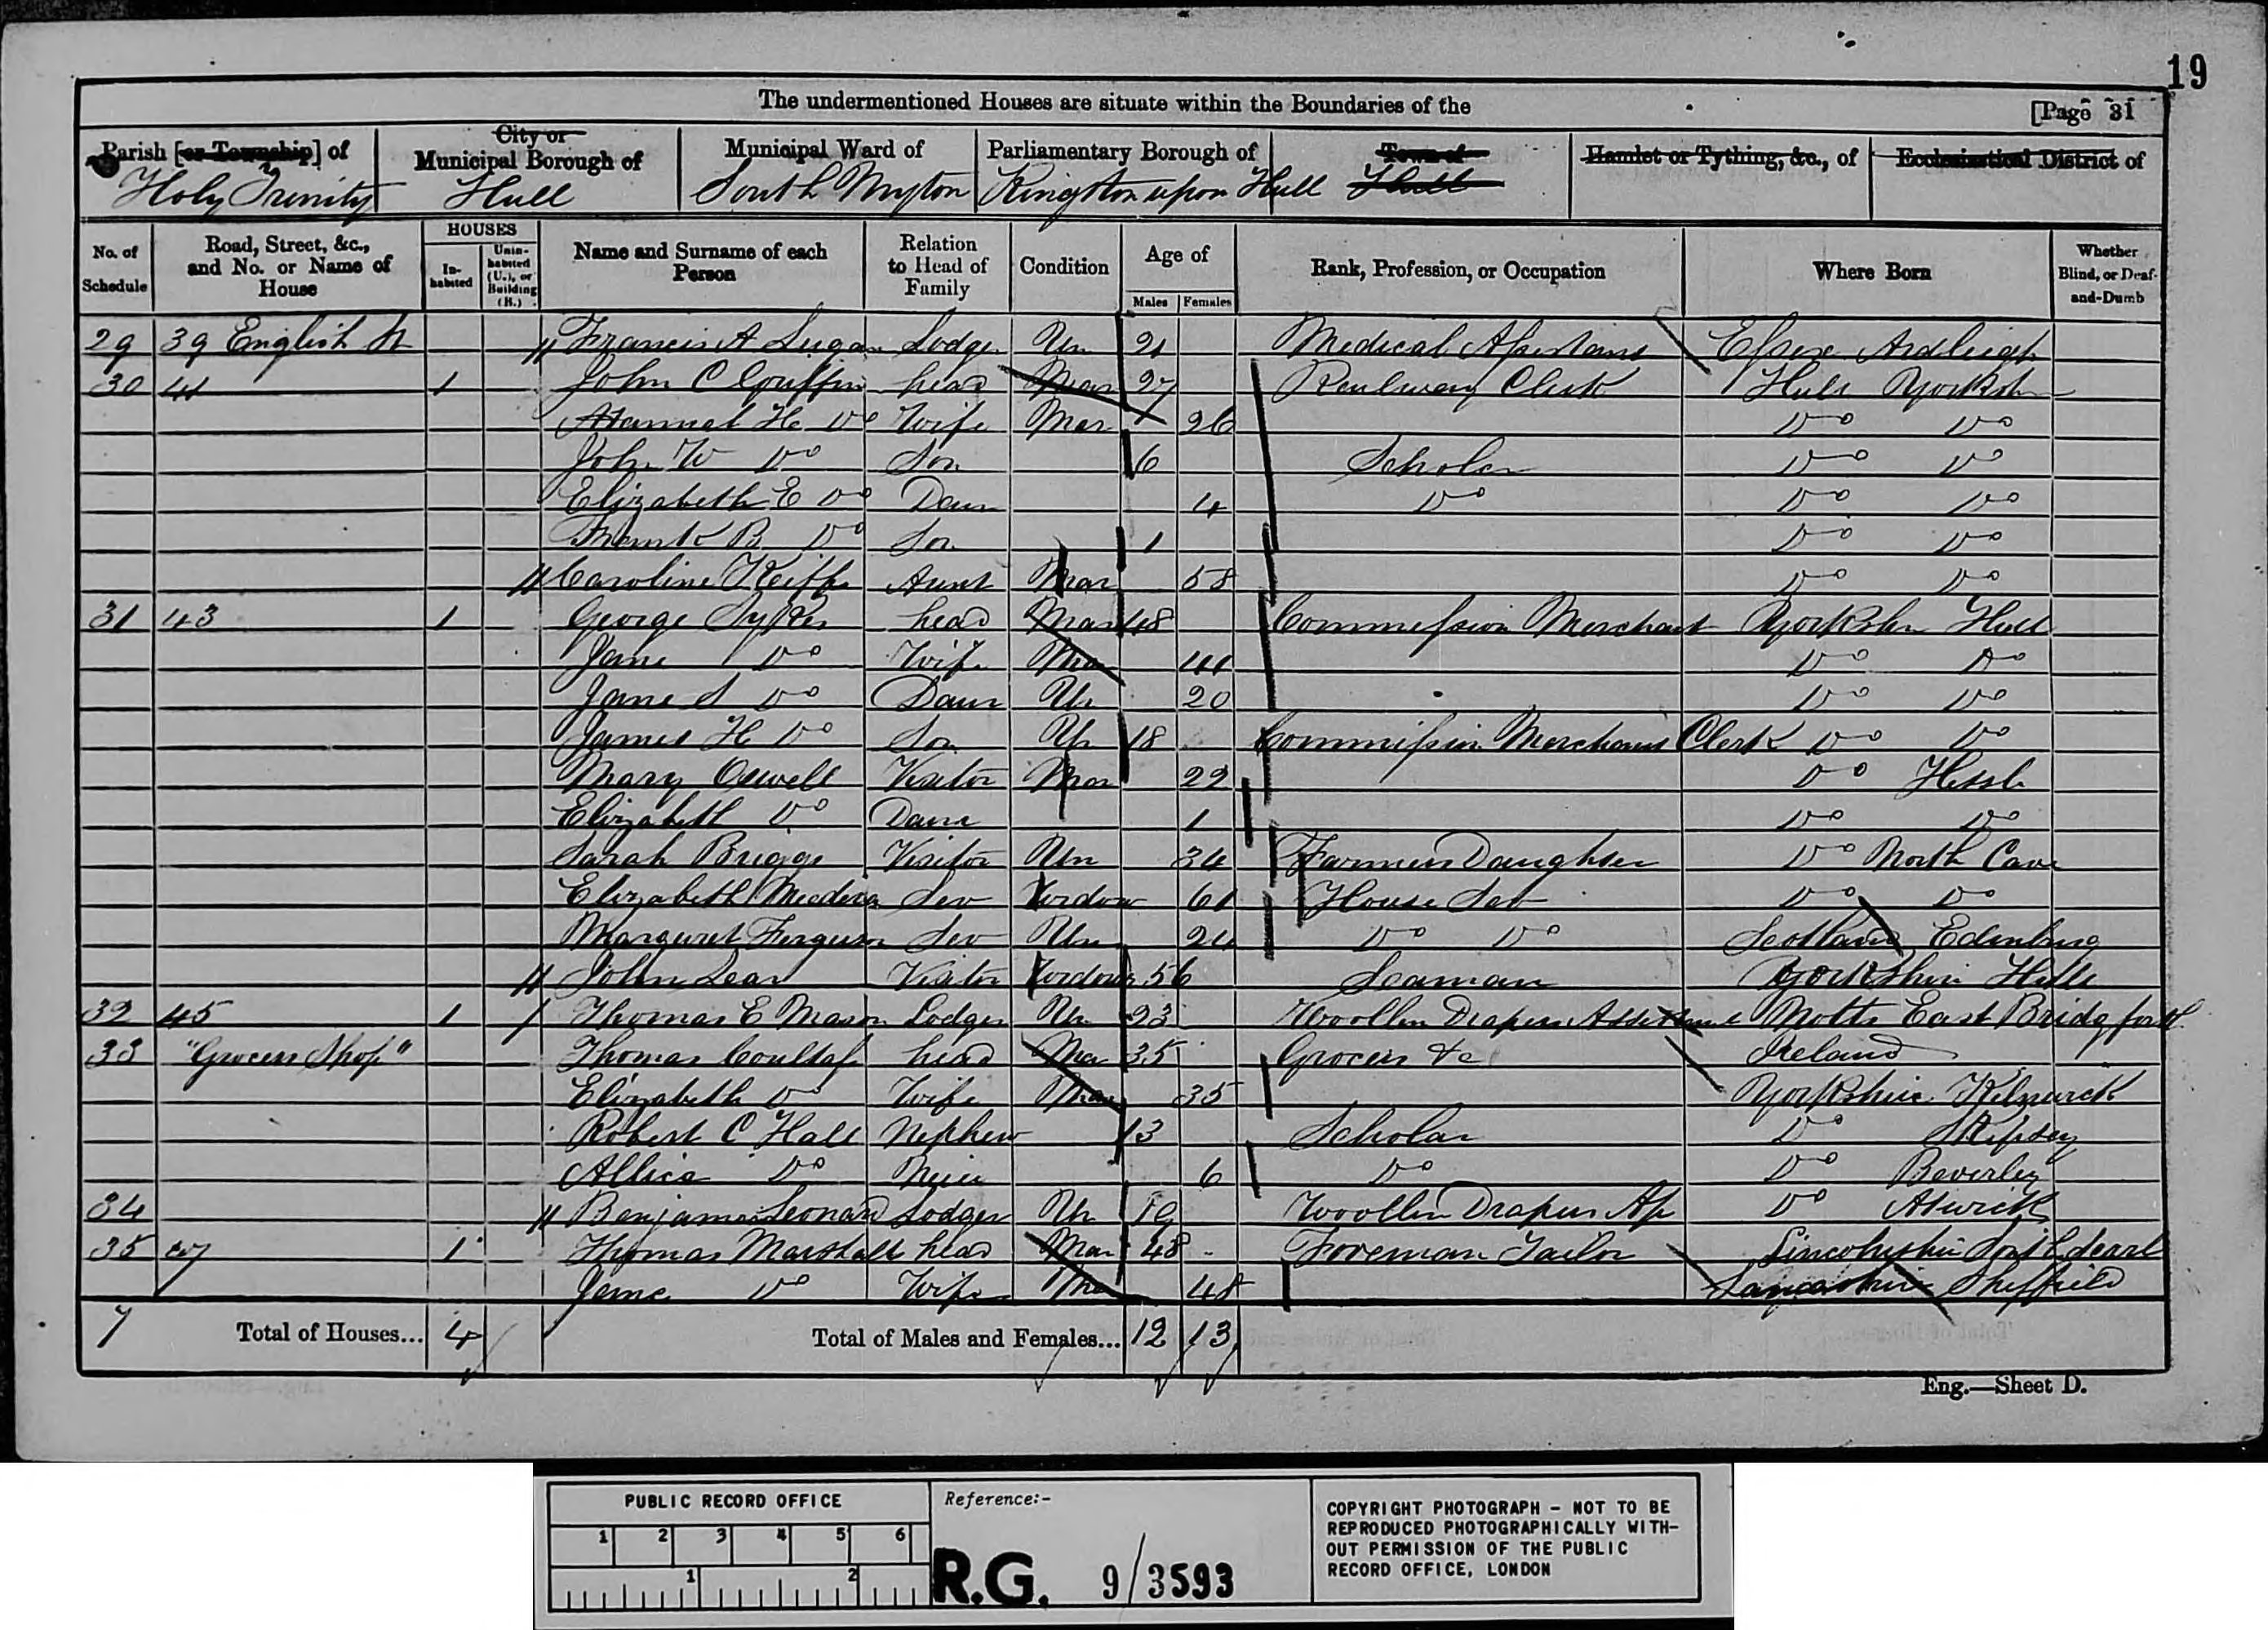 19
The undermentioned Houses are situate within the Boundaries of the [Page 31
Parish [or Township] of City or Municipal Borough of Municipal Ward of Parliamentary Borough of Town of Hamlet or Tything, &c., of Ecclesiastical District of
Holy Trinity Hull South Myton Kingston upon Hull Hull
No. of Schedule Road, Street, &c., and No. or Name of House HOUSES Inhabited Uninhabited (U.), or Building (B.) Name and Surname of each Person Relation to Head of Family Condition Age of Males Females Rank, Profession, or Occupation Where Born Whether Blind, or Deaf-and-Dumb
29 39 English St Francis A Lodger Un 21 Medical Assistant Essex Ardleigh
30 41 1 John C Griffin head Mar 27 Railway Clerk Hull Yorksh
Hannah H Do Wife Mar 26 Do Do
John W Do Son 6 Scholar Do Do
Elizabeth E Do Daur 4 Do Do Do
Frank B Do Son 1 Do Do
Caroline Aunt Mar 58 Do Do
31 43 1 George Sykes head Mar 48 Commission Merchant Yorkshr Hull
Jane Do Wife Mar 41 Do Do
Jane S Do Daur Un 20 Do Do
James H Do Son Un 18 Commission Merchants Clerk Do Do
Mary Oewell Visitor Mar 22 Do Hessle
Elizabeth Do Daur 1 Do Do
Sarah Briggs Visitor Un 34 Farmers Daughter Do North Cave
Elizabeth Serv Widow 61 House Serv Do Do
Margaret Ferguson Serv Un 24 Do Do Scotland Edinburg
John Lear Visitor Widower 56 Seaman Yorkshire Hull
32 45 1 Thomas E Mason Lodger Un 23 Woollen Drapers Assistant Notts East Bridgforth
33 "Grocers Shop" Thomas Coultass head Mar 35 Grocer &c Ireland
Elizabeth Do Wife Mar 35 Yorkshire Kilnwick
Robert C Hall Nephew 13 Scholar Do Skipsey
Allice Do Niece 6 Do Do Beverley
34 Benjamin Leonard Lodger Un 19 Woollen Drapers Ap Do Atwick
35 47 1 Thomas Marshall head Mar 48 Foreman Tailor Lincolnshire
Jane Do Wife Mar 48 Lancashire Sheffield
7 Total of Houses... 4 Total of Males and Females... 12 13
Eng.—Sheet D.
PUBLIC RECORD OFFICE
1 2 3 4 5 6
1 2
Reference:-
R.G. 9/3593
COPYRIGHT PHOTOGRAPH – NOT TO BE
REPRODUCED PHOTOGRAPHICALLY WITH-
OUT PERMISSION OF THE PUBLIC
RECORD OFFICE, LONDON